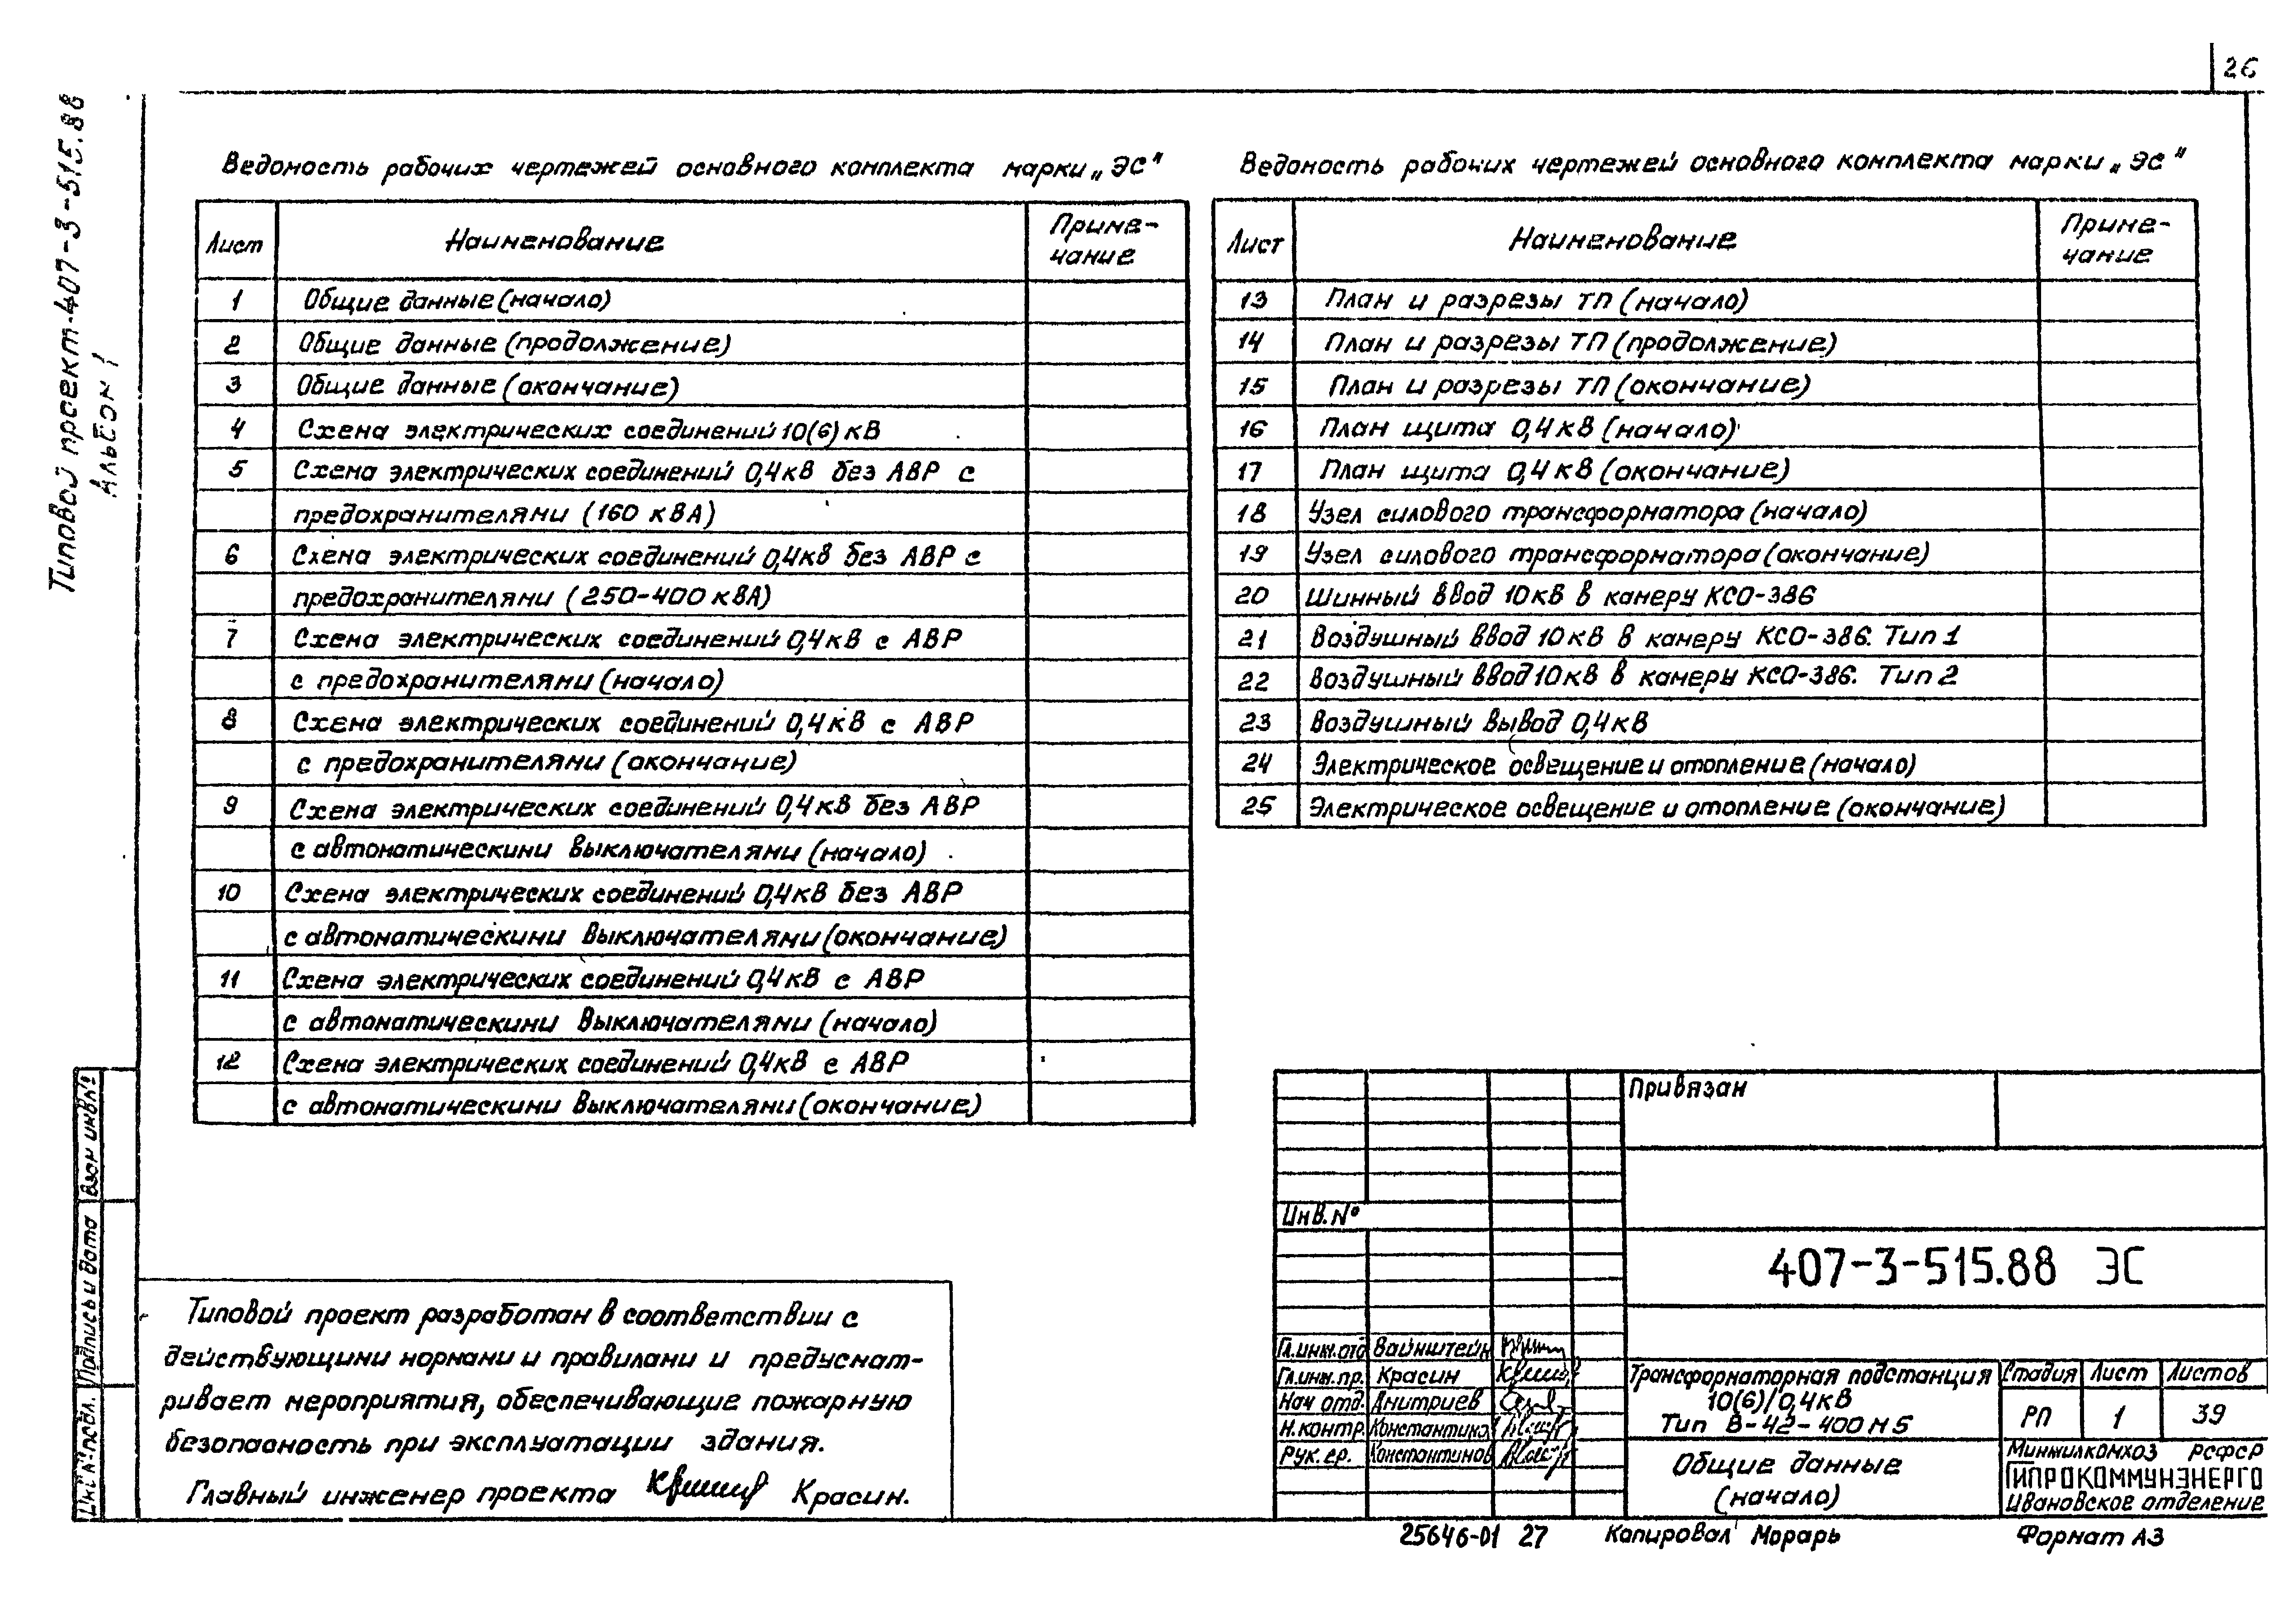 26
Типовой проект 407-3-515.88
Альбом 1
Ведомость рабочих чертежей основного комплекта марки „ЭС"
Лист Наименование Приме-
чание
1 Общие данные (начало)
2 Общие данные (продолжение)
3 Общие данные (окончание)
4 Схема электрических соединений 10(6) кВ
5 Схема электрических соединений 0,4кВ без АВР с
предохранителями (160 кВА)
6 Схема электрических соединений 0,4кВ без АВР с
предохранителями (250-400 кВА)
7 Схема электрических соединений 0,4кВ с АВР
с предохранителями (начало)
8 Схема электрических соединений 0,4кВ с АВР
с предохранителями (окончание)
9 Схема электрических соединений 0,4кВ без АВР
с автоматическими выключателями (начало)
10 Схема электрических соединений 0,4кВ без АВР
с автоматическими выключателями (окончание)
11 Схема электрических соединений 0,4кВ с АВР
с автоматическими выключателями (начало)
12 Схема электрических соединений 0,4кВ с АВР
с автоматическими выключателями (окончание)
Ведомость рабочих чертежей основного комплекта марки „ЭС"
Лист Наименование Приме-
чание
13 План и разрезы ТП (начало)
14 План и разрезы ТП (продолжение)
15 План и разрезы ТП (окончание)
16 План щита 0,4кВ (начало)
17 План щита 0,4кВ (окончание)
18 Узел силового трансформатора (начало)
19 Узел силового трансформатора (окончание)
20 Шинный ввод 10кВ в камеру КСО-386
21 Воздушный ввод 10кВ в камеру КСО-386. Тип 1
22 Воздушный ввод 10кВ в камеру КСО-386. Тип 2
23 Воздушный вывод 0,4кВ
24 Электрическое освещение и отопление (начало)
25 Электрическое освещение и отопление (окончание)
Типовой проект разработан в соответствии с
действующими нормами и правилами и предусмат-
ривает мероприятия, обеспечивающие пожарную
безопасность при эксплуатации здания.
Главный инженер проекта Красин.
Взам инв№
Подпись и дата
Инв.№подл.
Привязан
Инв.№
407-3-515.88 ЭС
Гл.инж.отд Вайнштейн
Гл.инж.пр. Красин
Нач отд. Дмитриев
Н.контр. Константинов
Рук.гр. Константинов
Трансформаторная подстанция
10(6)/0,4кВ
Тип В-42-400М5
Стадия Лист Листов
РП 1 39
Общие данные
(начало)
Минжилкомхоз РСФСР
ГИПРОКОММУНЭНЕРГО
Ивановское отделение
25646-01 27 Копировал Морарь Формат А3